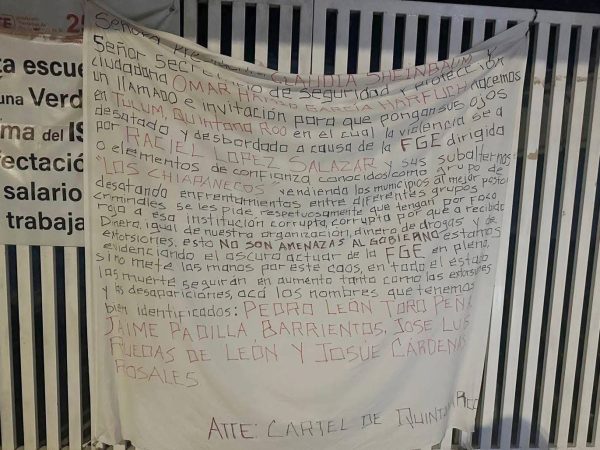 25
ta escue
una Verd
ma del IS
fectació
salario
trabaja
Señora CLAUDIA SHEINBAUM Y
Señor secretario de seguridad y protección
ciudadana OMAR HAMID GARCÍA HARFUCH hacemos
un llamado e invitación para que pongan sus ojos
en TULUM, QUINTANA ROO en el cual la violencia se a
desatado y desbordado a causa de la FGE dirigida
por RACIEL LOPEZ SALAZAR y sus subalternos
o elementos de confianza conocidos como grupo de
"LOS CHIAPANECOS" vendiendo los municipios al mejor postor
desatando enfrentamientos entre diferentes grupos
criminales se les pide respetuosamente que tengan por foco
rojo a esa institucion corrupta, corrupta por qué a recibido
Dinero, igual de nuestra organización, dinero de drogas y de
extorsiones, esto NO SON AMENAZAS AL GOBIERNO estamos
evidenciando el oscuro actuar de la FGE en pleno,
si no mete las manos por este caos, en todo el estado
las muerte seguirán en aumento tanto como las extorsiones
y las desapariciones, acá los nombres que tenemos
bien identificados: PEDRO LEÓN TORO PEÑA
JAIME PADILLA BARRIENTOS, JOSE LUIS
RUEDAS DE LEÓN Y JOSÚE CÁRDENAS
ROSALES
ATTE: CARTEL DE QUINTANA ROO